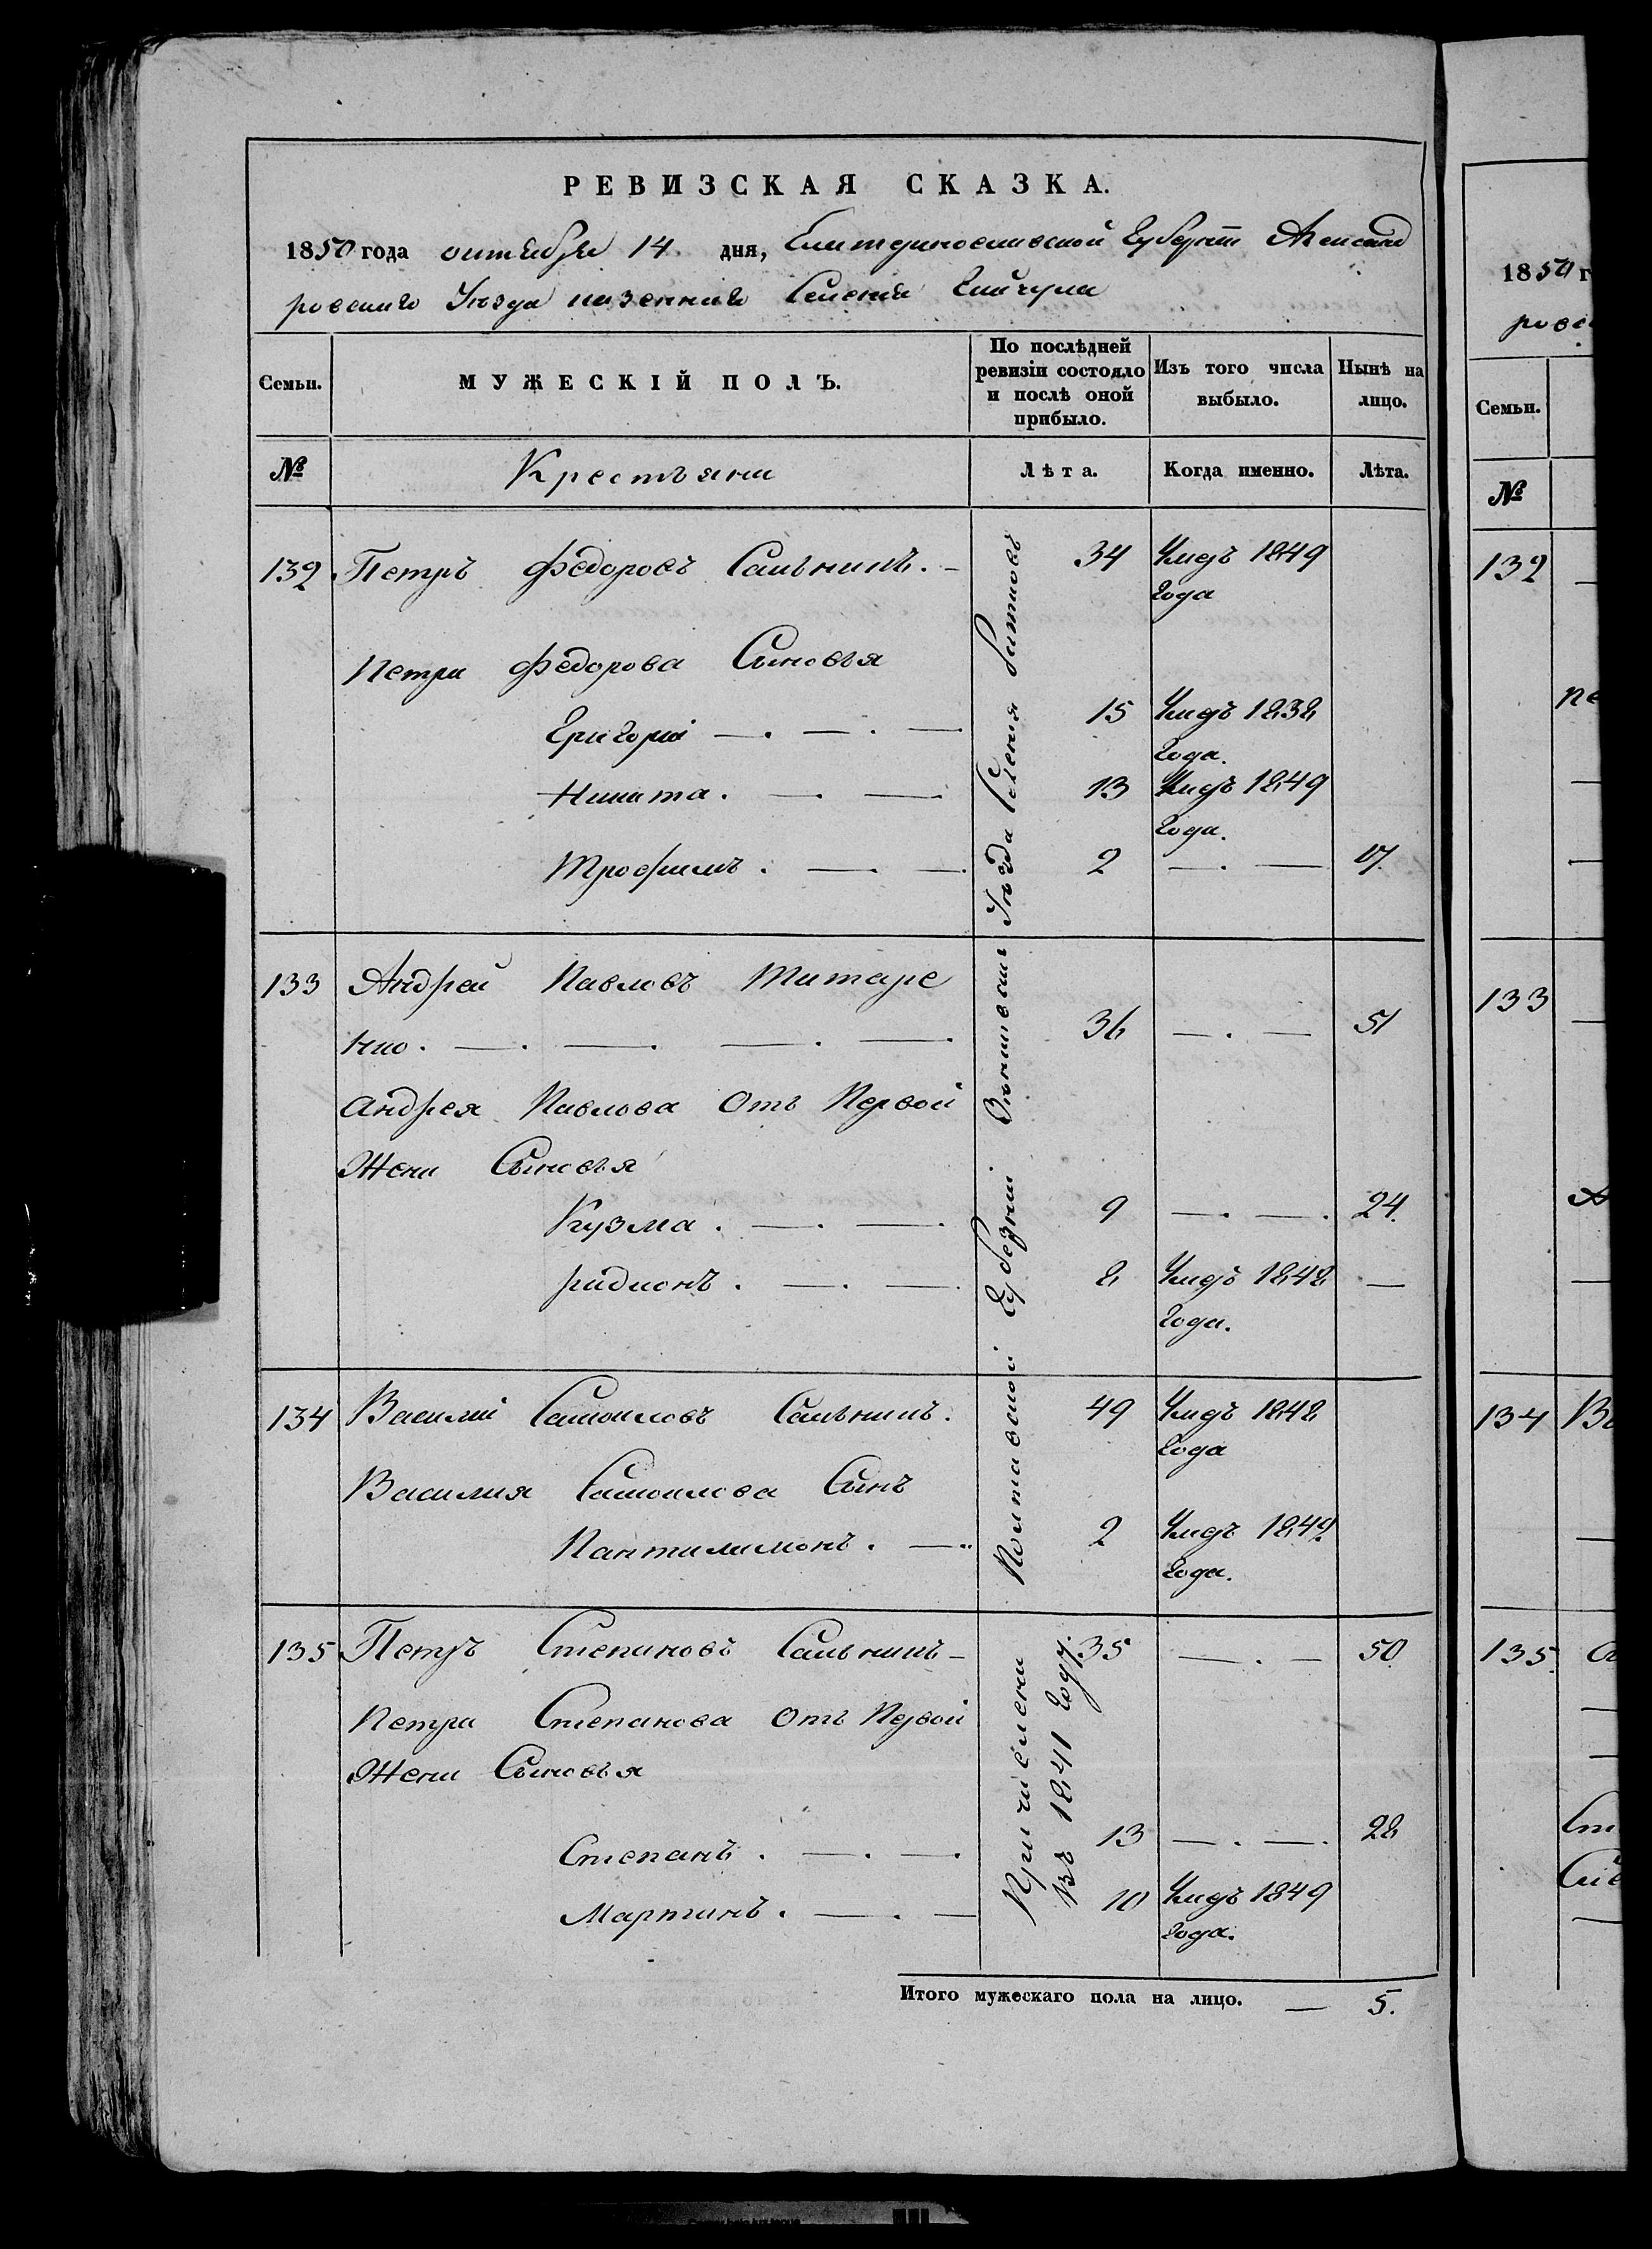 РЕВИЗСКАЯ СКАЗКА.
1850 года октября 14 дня, Екатеринославской Губерніи Александ
ровскаго Уѣзда казеннаго Селенія
Семьи.
МУЖЕСКІЙ ПОЛЪ.
По послѣдней ревизіи состояло и послѣ оной прибыло.
Изъ того числа выбыло.
Нынѣ на лицо.
№
Крестъяни
Лѣта.
Когда именно.
Лѣта.
132 Петръ Федоровъ Сальникъ. — 34 Умеръ 1849
года
Петра Федорова Сыновья
Григорій —. —. — 15 Умеръ 1838
года.
Никита. —. — 13 Умеръ 1849
года.
Трофимъ. —. — 2 —. — 17.
133 Андрей Павловъ Титаре
нко. —. —. —. — 36 —. — 51
Андрея Павлова Отъ Первой
Жени Сыновья
Кузма. —. —. 9 —. —. 24.
Радионъ. —. —. 8 Умеръ 1848 —
года.
134 Василій Самойловъ Сальникъ. 49 Умеръ 1848
года
Василия Самойлова Сынъ
Пантилимонъ. —.. 2 Умеръ 1849
года.
135 Петръ Степановъ Сальникъ — 35 —. — 50
Петра Степанова Отъ Первой
Жени Сыновья
Степанъ. —. —. 13 —. —. 28
Мартинъ. —. — 10 Умеръ 1849
года.
Причислени Полтавской Губерніи Уѣзда Селенія
въ 1841 году.
Итого мужескаго пола на лицо. — 5.
1850 г
ровс
Семьи.
№
132
133
134 Ва
135.